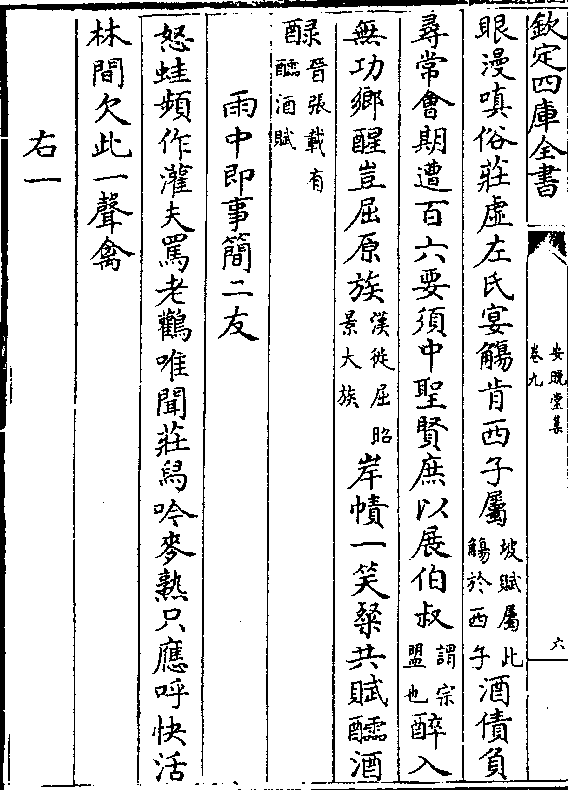 欽定四庫全書
安晚堂集
卷九
六
眼漫嗔俗莊虛左氏宴觴肯西子屬坡賦屬此觴於西子酒債負
尋常會期遭百六要須中聖賢庶以展伯叔謂宗盟也醉入
無功鄉醒豈屈原族漢徙屈昭景大族岸幘一笑粲共賦醽酒
醁晉張載有醽酒賦
雨中即事簡二友
怒蛙頻作灌夫罵老鸛唯聞莊舄吟麥熟只應呼快活
林間欠此一聲禽
右一